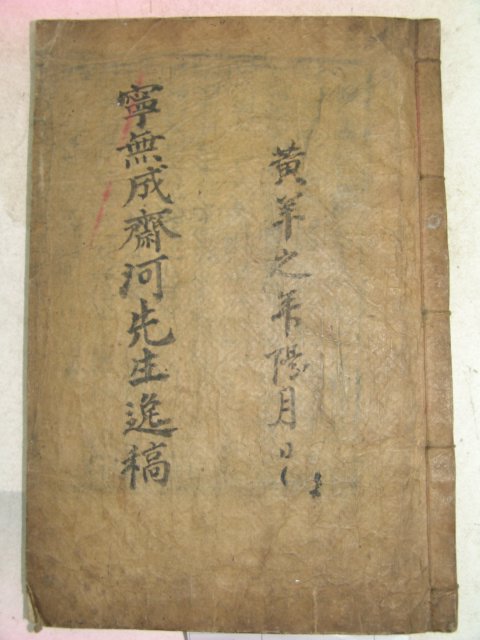 黃羊之年陽月日
寧無成齋河先生逸稿